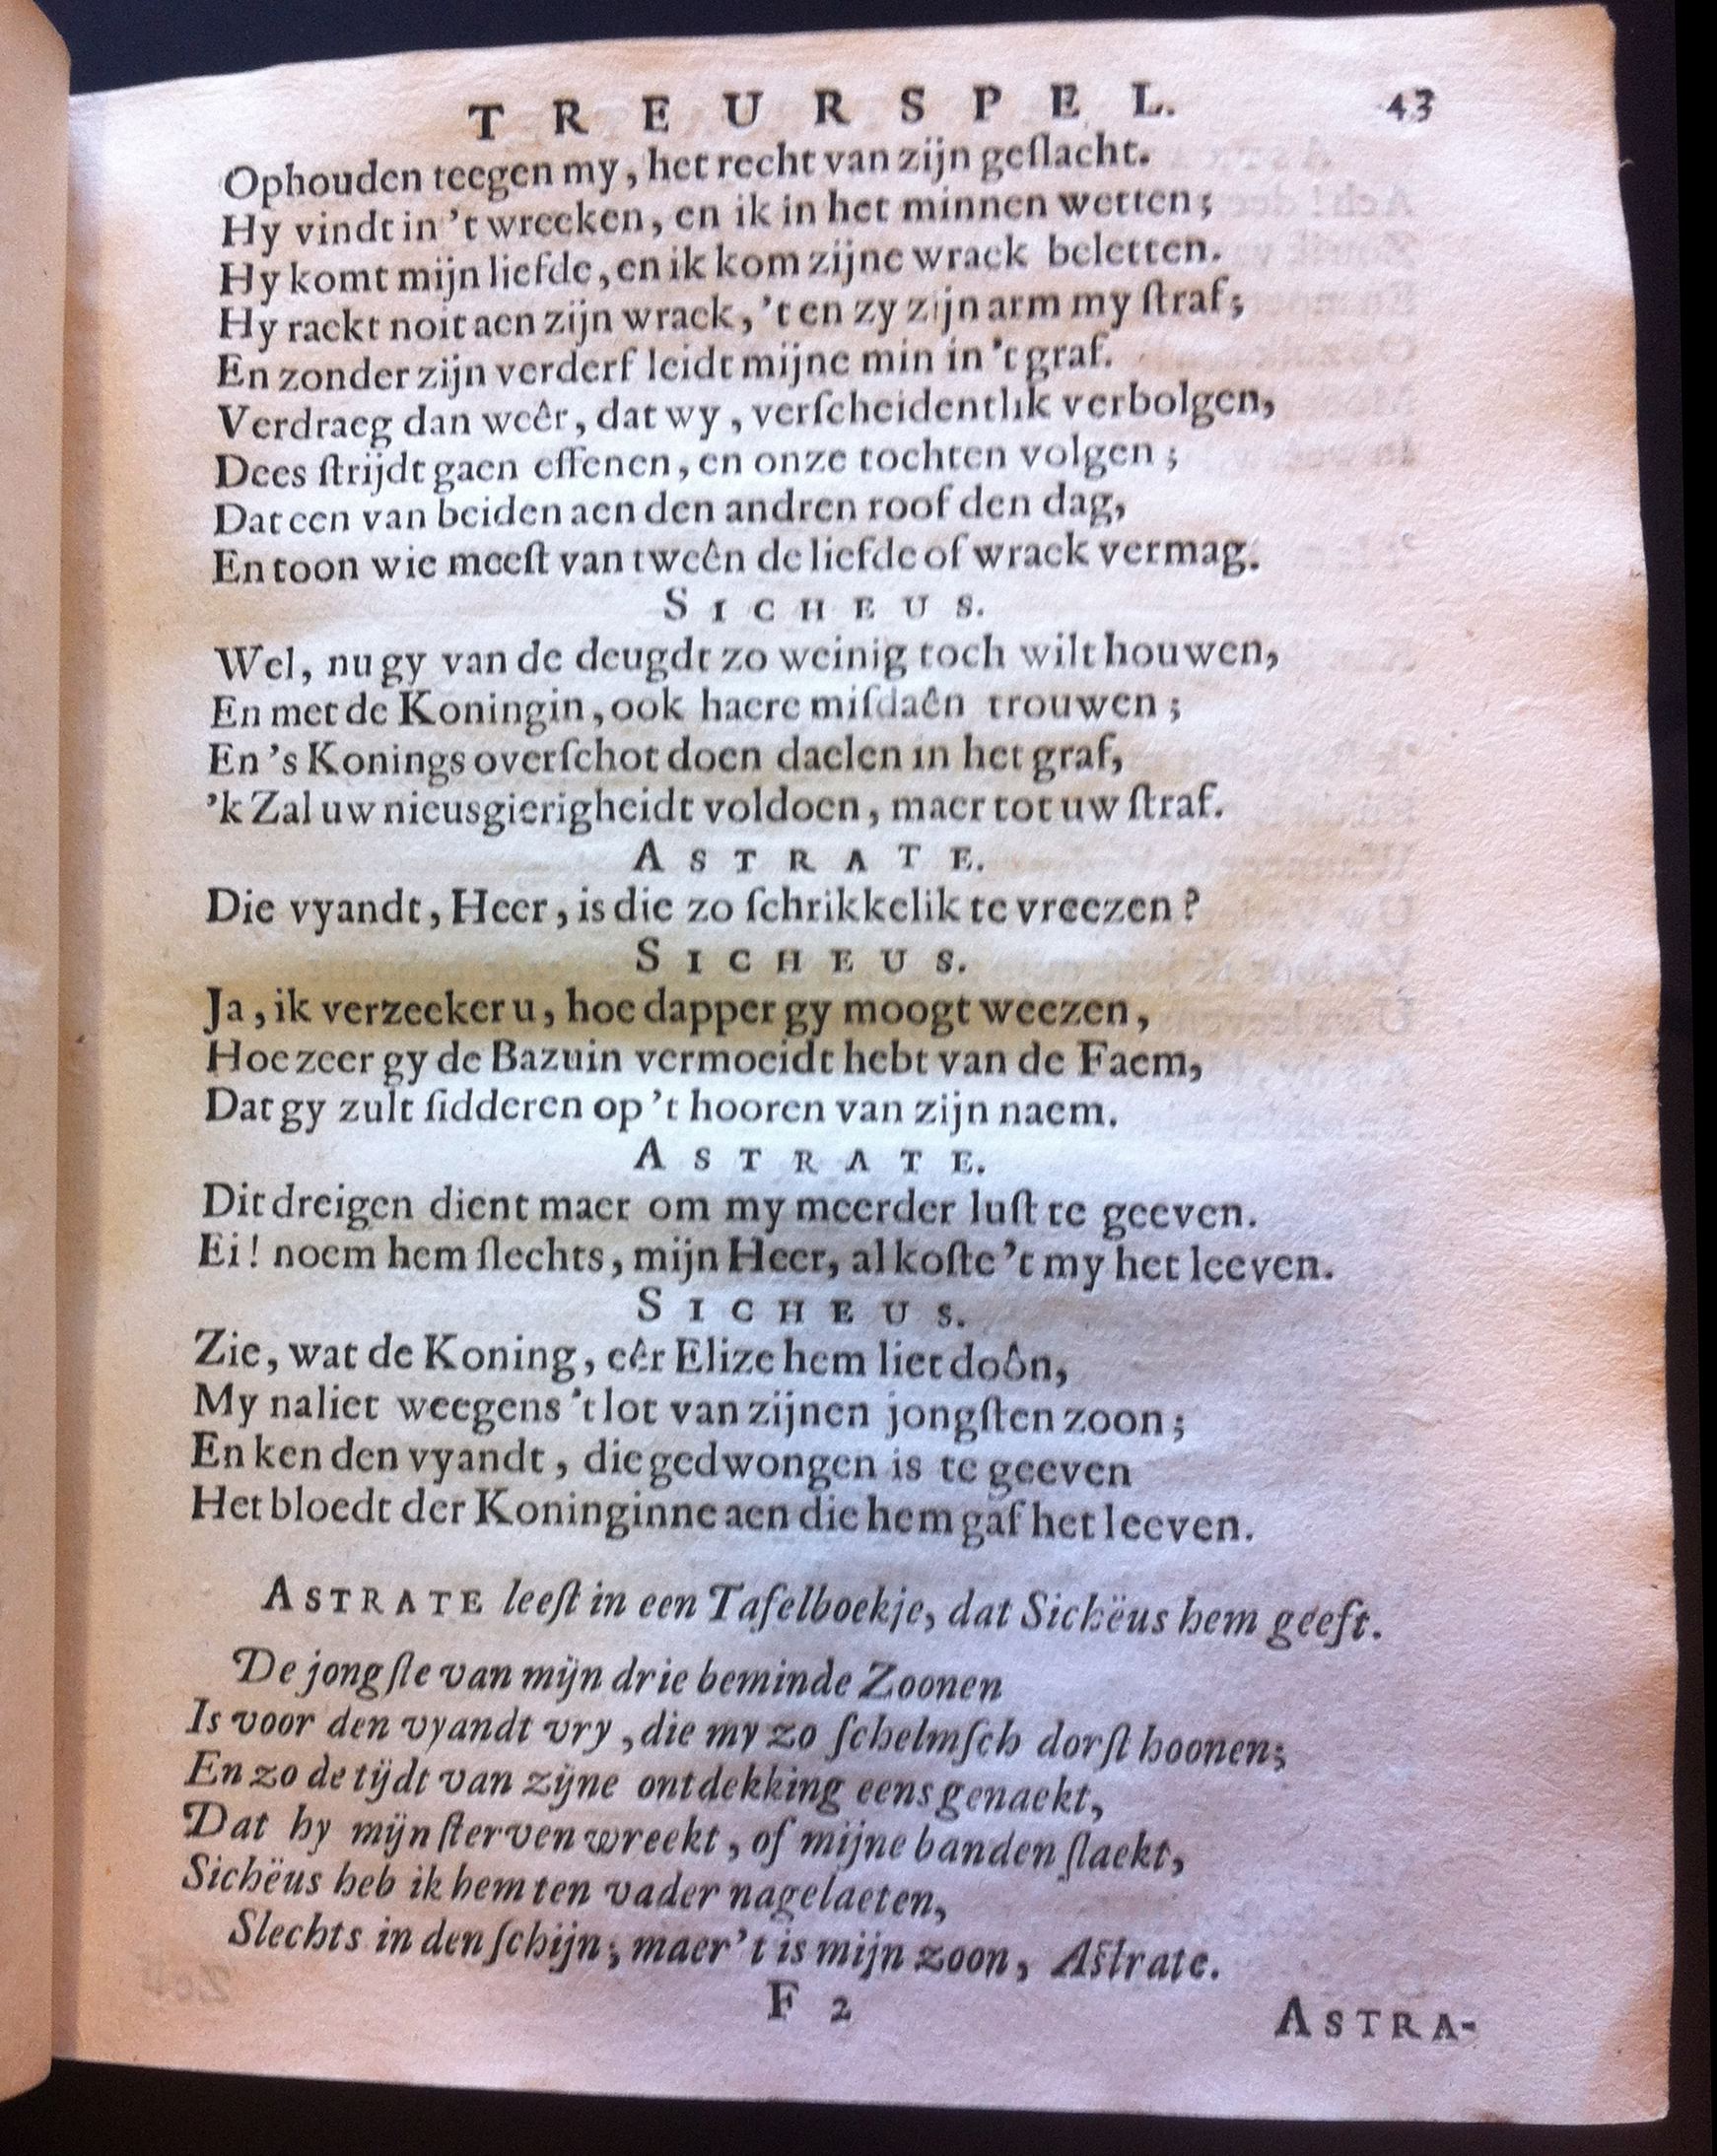 TREURSPEL. 43
Ophouden teegen my, het recht van zijn geſlacht.
Hy vindt in 't wreeken, en ik in het minnen wetten;
Hy komt mijn liefde, en ik kom zijne wraek beletten.
Hy raekt noit aen zijn wraek, 't en zy zijn arm my ſtraf;
En zonder zijn verderf leidt mijne min in 't graf.
Verdraeg dan weêr, dat wy, verſcheidentlik verbolgen,
Dees ſtrijdt gaen effenen, en onze tochten volgen;
Dat een van beiden aen den andren roof den dag,
En toon wie meeſt van tweên de liefde of wraek vermag.
SICHEUS.
Wel, nu gy van de deugdt zo weinig toch wilt houwen,
En met de Koningin, ook haere miſdaên trouwen;
En 's Konings overſchot doen daelen in het graf,
'k Zal uw nieusgierigheidt voldoen, maer tot uw ſtraf.
ASTRATE.
Die vyandt, Heer, is die zo ſchrikkelik te vreezen?
SICHEUS.
Ja, ik verzeeker u, hoe dapper gy moogt weezen,
Hoe zeer gy de Bazuin vermoeidt hebt van de Faem,
Dat gy zult ſidderen op 't hooren van zijn naem.
ASTRATE.
Dit dreigen dient maer om my meerder luſt te geeven.
Ei! noem hem ſlechts, mijn Heer, al koſte 't my het leeven.
SICHEUS.
Zie, wat de Koning, eêr Elize hem liet doôn,
My naliet weegens 't lot van zijnen jongſten zoon;
En ken den vyandt, die gedwongen is te geeven
Het bloedt der Koninginne aen die hem gaf het leeven.
ASTRATE leeſt in een Tafelboekje, dat Sichëus hem geeft.
De jongſte van mijn drie beminde Zoonen
Is voor den vyandt vry, die my zo ſchelmſch dorſt hoonen;
En zo de tijdt van zijne ontdekking eens genaekt,
Dat hy mijn ſterven wreekt, of mijne banden ſlaekt,
Sichëus heb ik hem ten vader nagelaeten,
Slechts in den ſchijn; maer 't is mijn zoon, Aſtrate.
F 2
ASTRA-